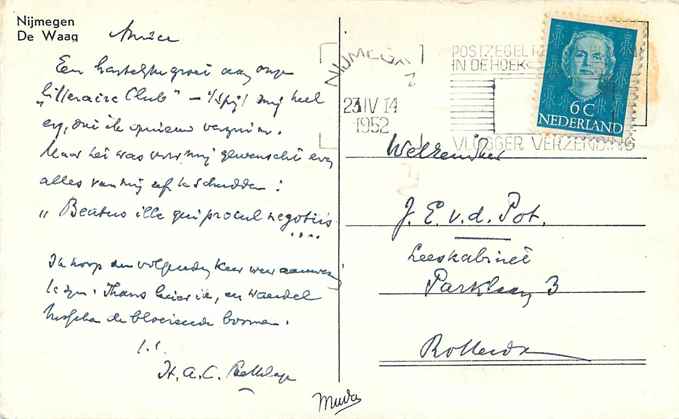 Nijmegen
De Waag
Amice
Een hartelijke groet aan onze
"litteraire Club" — 't spijt mij heel
erg, dat ik opnieuw verzuim.
Maar het was voor mij gewenscht even
alles van mij af te schudden:
"Beatus ille qui procul negotiis
....
Ik hoop den volgenden keer weer aanwezig
te zijn. Thans hier ik, en wandel
de bloeiende boomen.
t.t.
H.A.C.
NIJMEGEN
23 IV 14
1952
POSTZEGEL
IN DE HOEK
VLUGGER VERZENDING
6 C
NEDERLAND
J. E. v. d. Pot.
Leeskabinet
Parklaan 3
Rotterdam